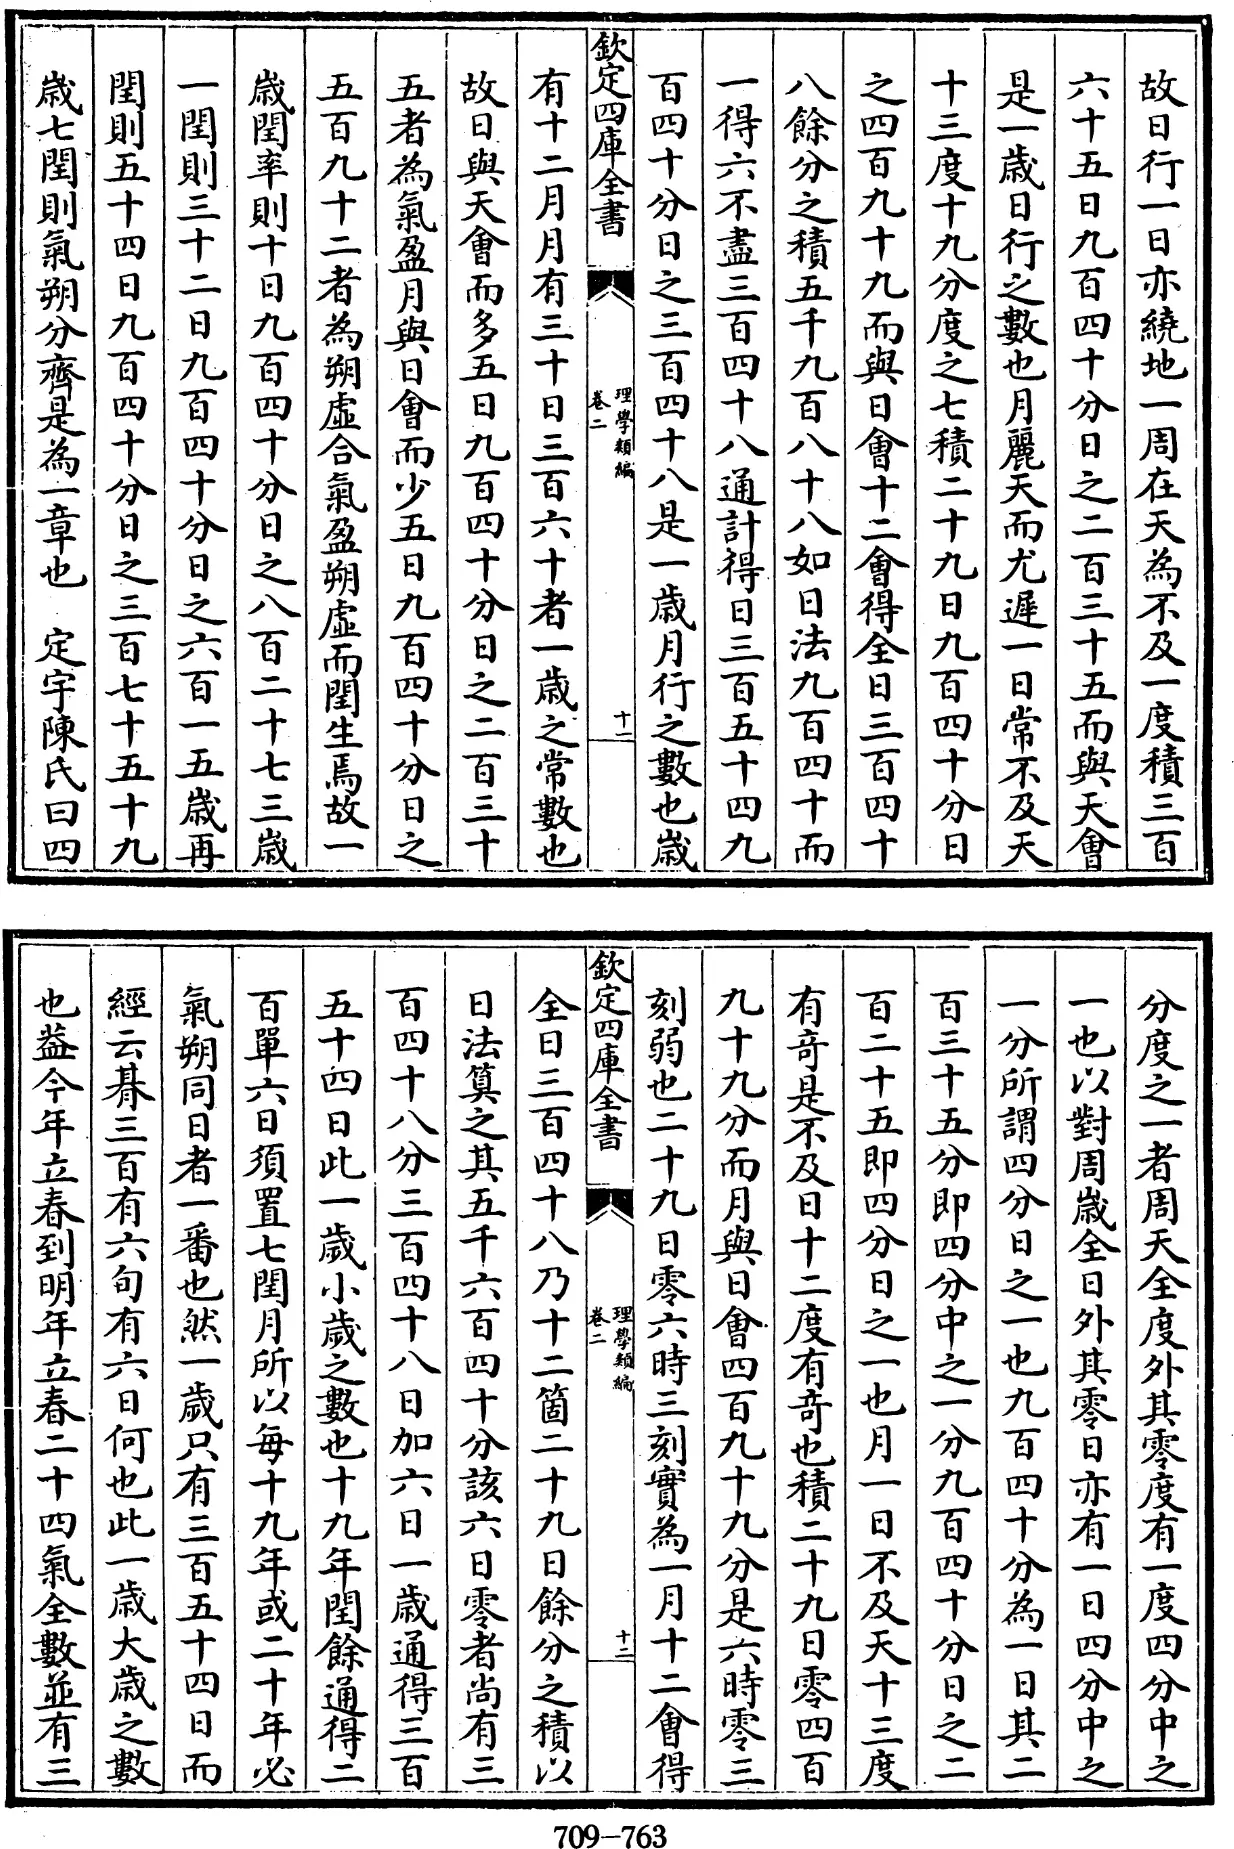 故日行一日亦繞地一周在天為不及一度積三百
六十五日九百四十分日之二百三十五而與天會
是一歳日行之數也月麗天而尤遲一日常不及天
十三度十九分度之七積二十九日九百四十分日
之四百九十九而與日會十二會得全日三百四十
八餘分之積五千九百八十八如日法九百四十而
一得六不盡三百四十八通計得日三百五十四九
百四十分日之三百四十八是一歳月行之數也歳
欽定四庫全書
理學類編
卷二
十一
有十二月月有三十日三百六十者一歳之常數也
故日與天會而多五日九百四十分日之二百三十
五者為氣盈月與日會而少五日九百四十分日之
五百九十二者為朔虛合氣盈朔虛而閏生焉故一
歳閏率則十日九百四十分日之八百二十七三歳
一閏則三十二日九百四十分日之六百一五歳再
閏則五十四日九百四十分日之三百七十五十九
歳七閏則氣朔分齊是為一章也　定宇陳氏曰四
分度之一者周天全度外其零度有一度四分中之
一也以對周歳全日外其零日亦有一日四分中之
一分所謂四分日之一也九百四十分為一日其二
百三十五分即四分中之一分九百四十分日之二
百二十五即四分日之一也月一日不及天十三度
有竒是不及日十二度有竒也積二十九日零四百
九十九分而月與日會四百九十九分是六時零三
刻弱也二十九日零六時三刻實為一月十二會得
欽定四庫全書
理學類編
卷二
十二
全日三百四十八乃十二箇二十九日餘分之積以
日法算之其五千六百四十分該六日零者尚有三
百四十八分三百四十八日加六日一歳通得三百
五十四日此一歲小歲之數也十九年閏餘通得二
百單六日須置七閏月所以每十九年或二十年必
氣朔同日者一番也然一歲只有三百五十四日而
經云朞三百有六旬有六日何也此一歳大歳之數
也葢今年立春到明年立春二十四氣全數並有三
709-763